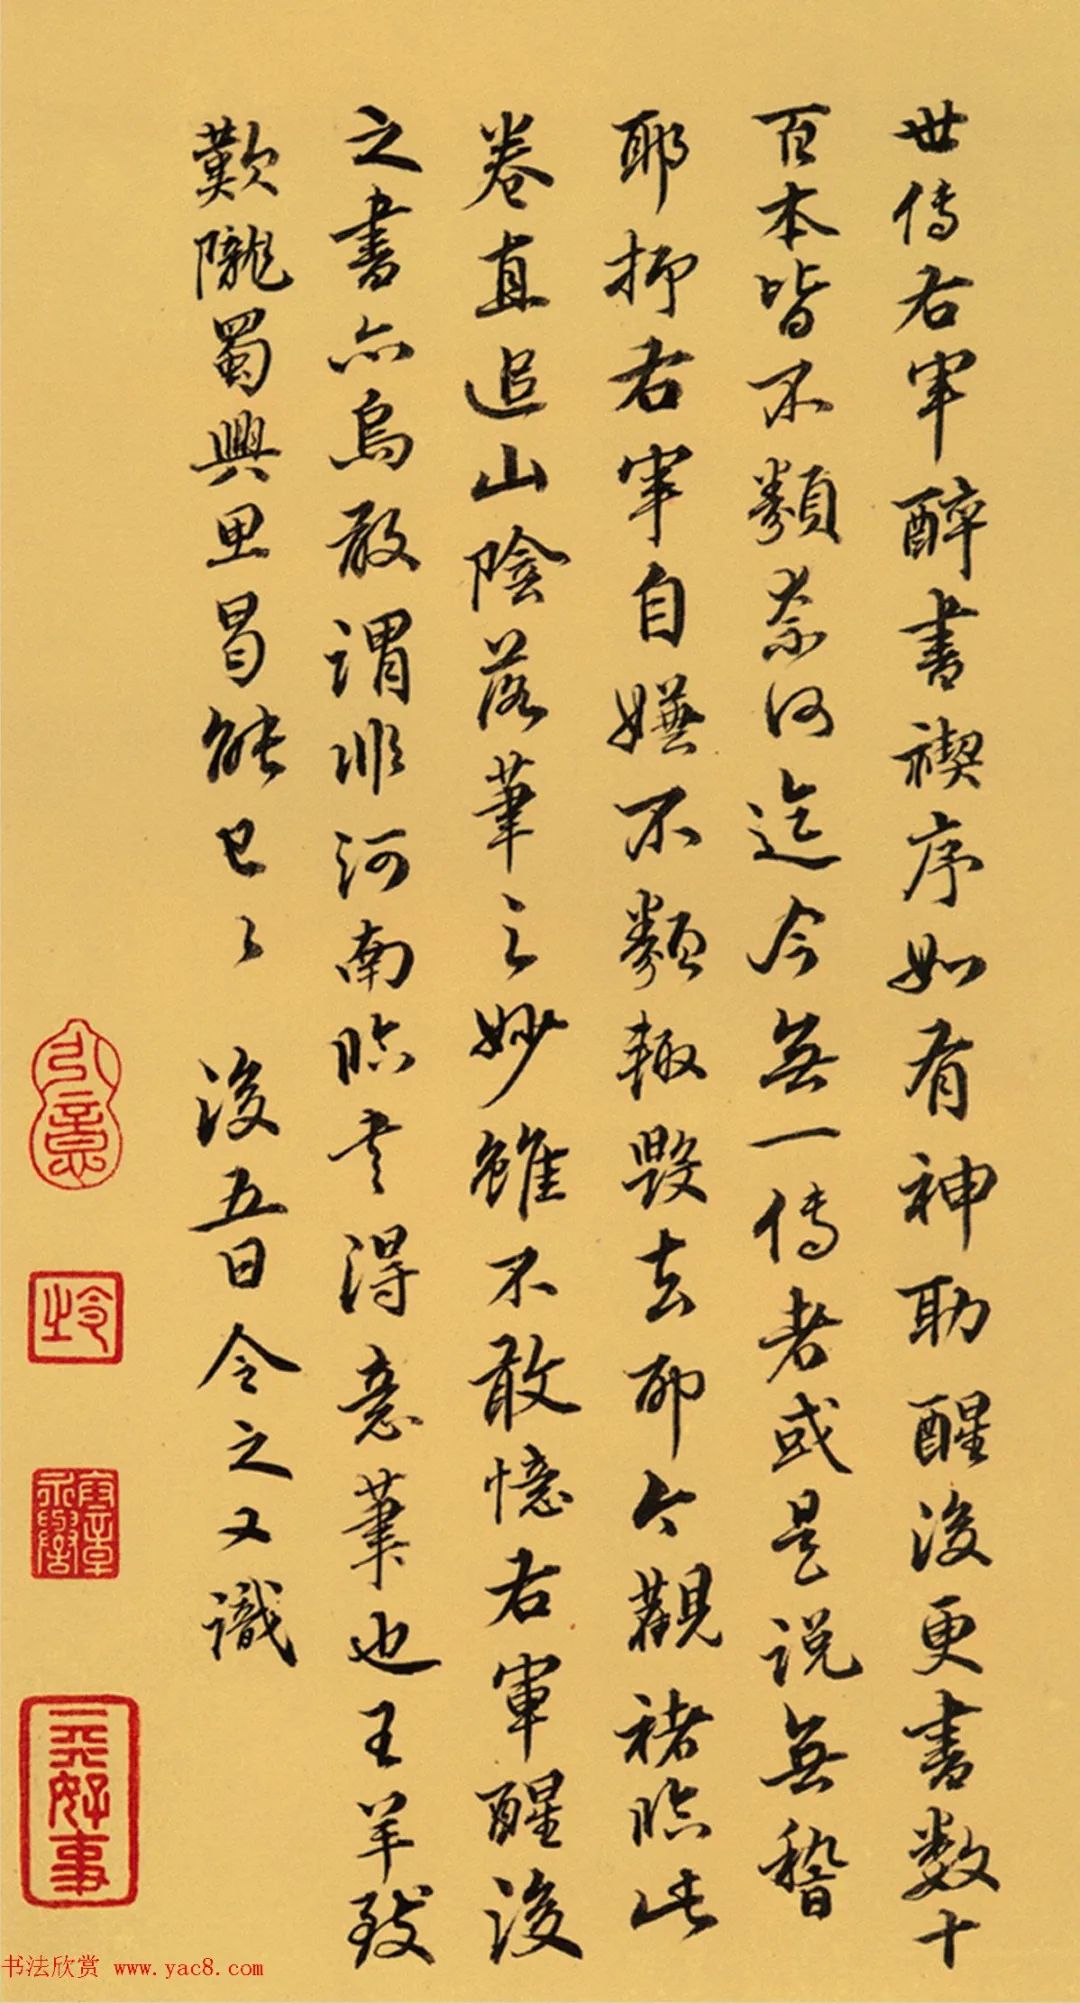 世傳右軍醉書禊序如有神助醒後更書數十
百本皆不類奈何迄今無一傳者或是説無稽
耶抑右軍自嫌不類輙毀去耶今觀褚臨此
卷直追山陰落筆之妙雖不敢憶右軍醒後
之書亦烏敢謂非河南臨書得意筆也王羊致
歎隴蜀興思曷能已已 後五日令之又識
心好事
书法欣赏 www.yac8.com